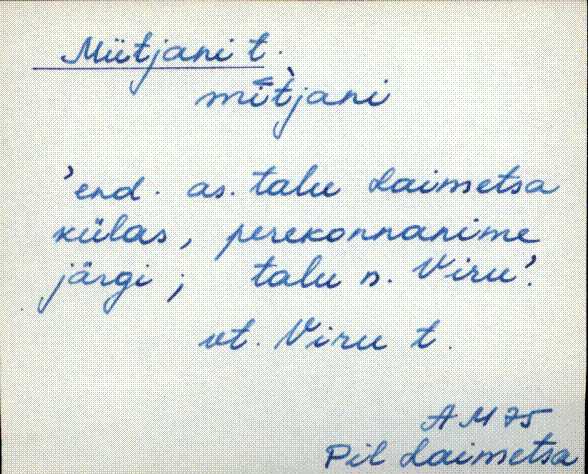 Mütjani t.
mī̀tjani
'end. as. talu Laimetsa
külas, perekonnanime
järgi; talu n. Viru'.
vt. Viru t.
AM 75
Pil Laimetsa